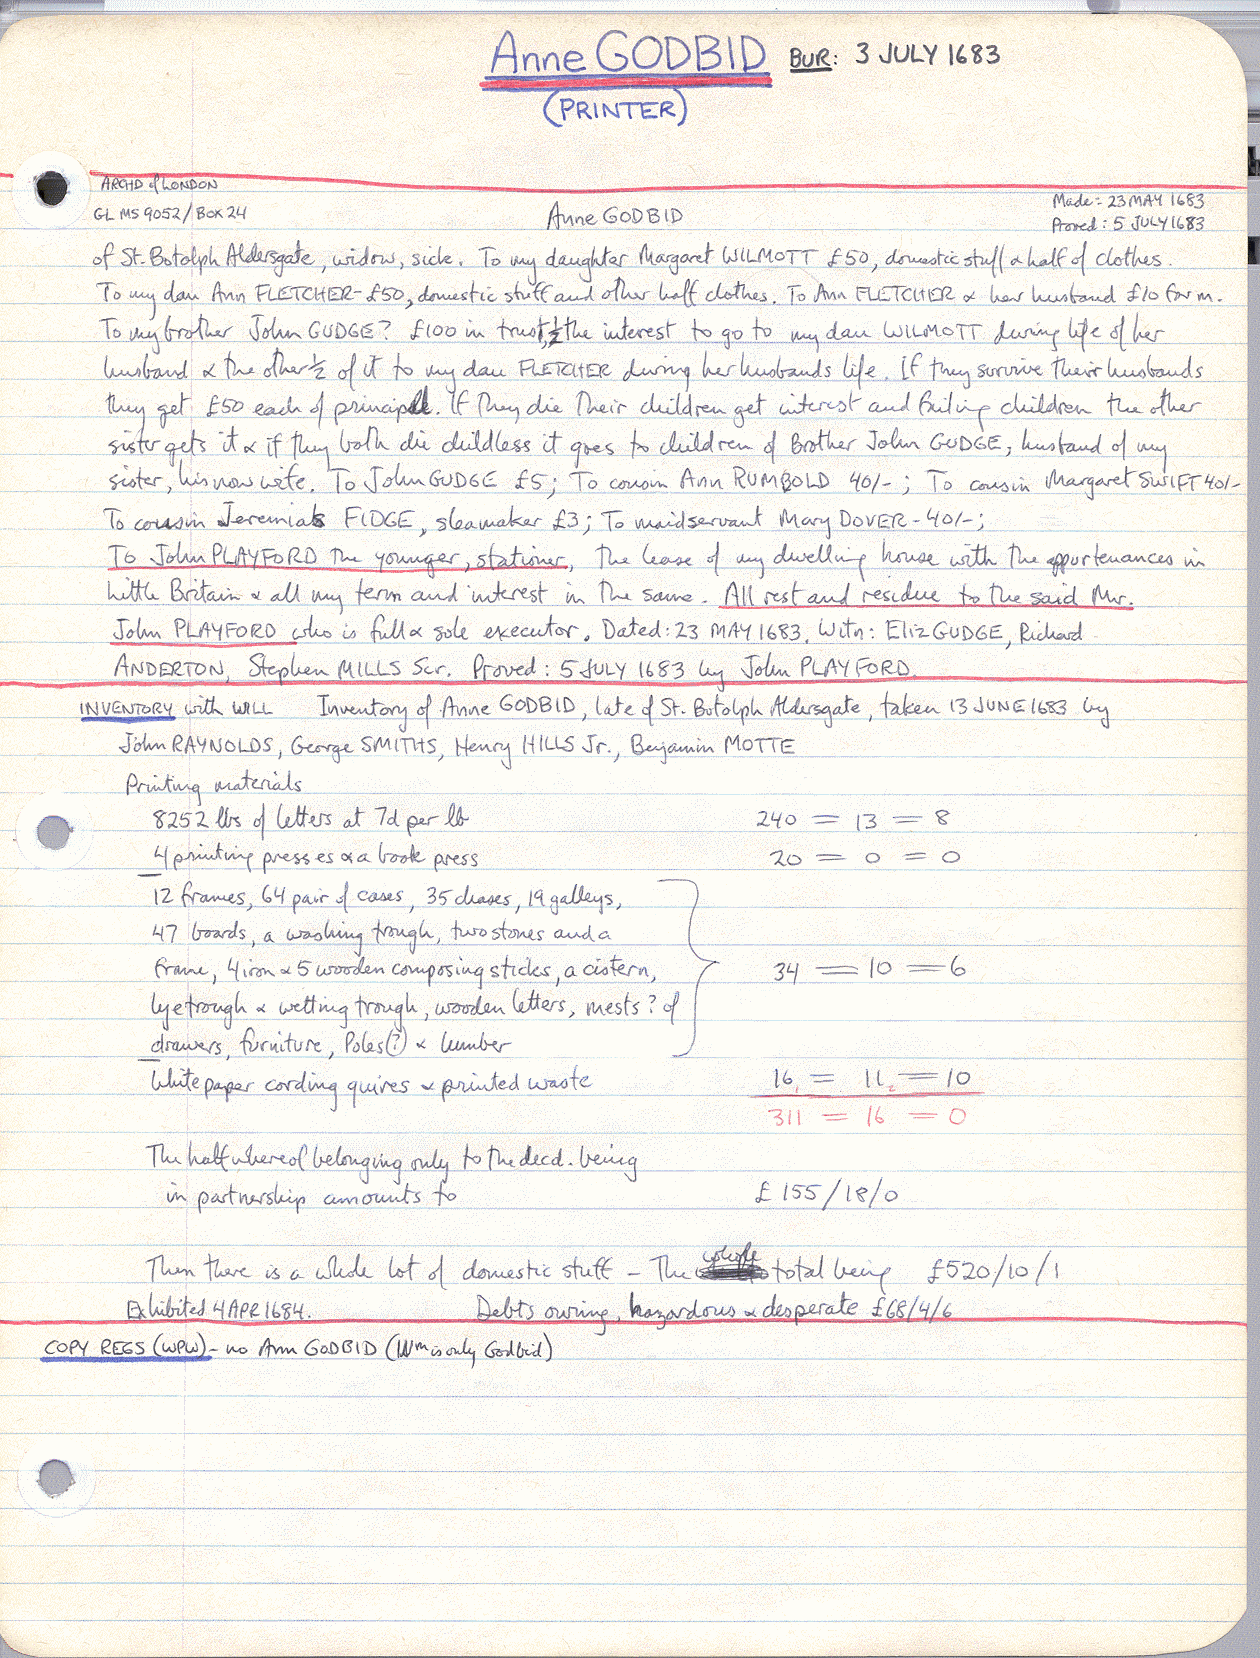 Anne GODBID BUR: 3 JULY 1683
(PRINTER)
ARCHD of LONDON
GL MS 9052/Box 24
Anne GODBID
Made: 23 MAY 1683
Proved: 5 JULY 1683
of St. Botolph Aldersgate, widow, sick. To my daughter Margaret WILMOTT £50, domestic stuff & half of clothes.
To my dau Ann FLETCHER - £50, domestic stuff and other half clothes. To Ann FLETCHER & her husband £10 for m.
To my brother John GUDGE? £100 in trust, ½ the interest to go to my dau WILMOTT during life of her
husband & the other ½ of it to my dau FLETCHER during her husbands life. If they survive their husbands
they get £50 each of principall. If they die their children get interest and failing children the other
sister gets it & if they both die childless it goes to children of Brother John GUDGE, husband of my
sister, his now wife. To John GUDGE £5; To cousin Ann RUMBOLD 40/-; To cousin Margaret SWIFT 40/-
To cousin Jeremiah FIDGE, sleamaker £3; To maidservant Mary DOVER - 40/-;
To John PLAYFORD the younger, stationer, the lease of my dwelling house with the appurtenances in
Little Britain & all my term and interest in the same. All rest and residue to the said Mr.
John PLAYFORD who is full & sole executor. Dated: 23 MAY 1683. Witn: Eliz GUDGE, Richard
ANDERTON, Stephen MILLS Scr. Proved: 5 JULY 1683 by John PLAYFORD.
INVENTORY with WILL Inventory of Anne GODBID, late of St. Botolph Aldersgate, taken 13 JUNE 1683 by
John RAYNOLDS, George SMITHS, Henry HILLS Jr., Benjamin MOTTE
Printing materials
8252 lbs of letters at 7d per lb 240 = 13 = 8
4 printing presses & a book press 20 = 0 = 0
12 frames, 64 pair of cases, 35 chases, 19 galleys,
47 boards, a washing trough, two stones and a
frame, 4 iron & 5 wooden composing sticks, a cistern, 34 = 10 = 6
lye trough & wetting trough, wooden letters, mests? of
drawers, furniture, Poles(?) & lumber
White paper cording quires & printed waste 16 = 11 = 10
311 = 16 = 0
The half whereof belonging only to the decd. being
in partnership amounts to £155/18/0
Then there is a whole lot of domestic stuff - The whole total being £520/10/1
Exhibited 4 APR 1684. Debts owing, hazardous & desperate £68/4/6
COPY REGS (WPW) - no Ann GODBID (Wm is only Godbid)